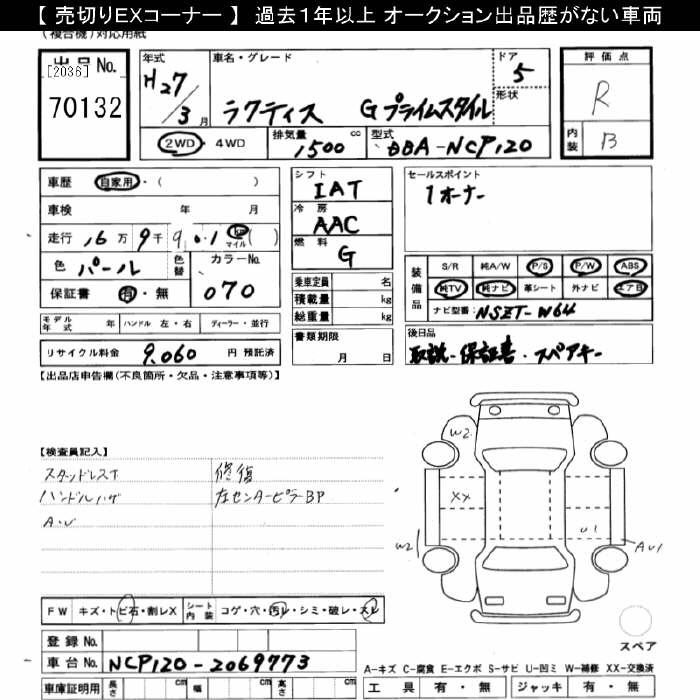 【 売切りEXコーナー 】 過去1年以上 オークション出品歴がない車両
(複合機)対応用紙
出品No.
[2036]
70132
年式
H27/3月
車名・グレード
ラクティス Gプライムスタイル
ドア
5
形状
2WD・4WD
排気量
1500 cc
型式
DBA-NCP120
評価点
R
内装
B
車歴 自家用・( )
車検 年 月
走行 16万9千9 0.1 km マイル ( )
色 パール 色替 カラーNo.
保証書 有・無 070
モデル年式 年 ハンドル 左・右 ディーラー・並行
リサイクル料金 9,060 円 預託済
シフト
IAT
冷房
AAC
燃料
G
乗車定員 名
積載量 kg
総重量 kg
書類期限
月 日
セールスポイント
1オーナー
装備品
S/R 純A/W P/S P/W ABS
純TV 純ナビ 革シート 外ナビ エアB
ナビ型番: NSZT-W64
後日品
取説・保証書・スペアキー
【出品店申告欄(不良箇所・欠品・注意事項等)】
【検査員記入】
修復
ハンドルハゲ 左センターピラーBP
A・U
W2
XX
U1
W2
AU1
FW キズ・トビ石・割レX シート内装 コゲ・穴・汚レ・シミ・破レ・スレ
スペア
登録No.
車台No. NCP120-2069773
A-キズ C-腐食 E-エクボ S-サビ U-凹ミ W-補修 XX-交換済
車庫証明用 長さ cm 幅 cm 高さ cm
工具 有・無 ジャッキ 有・無